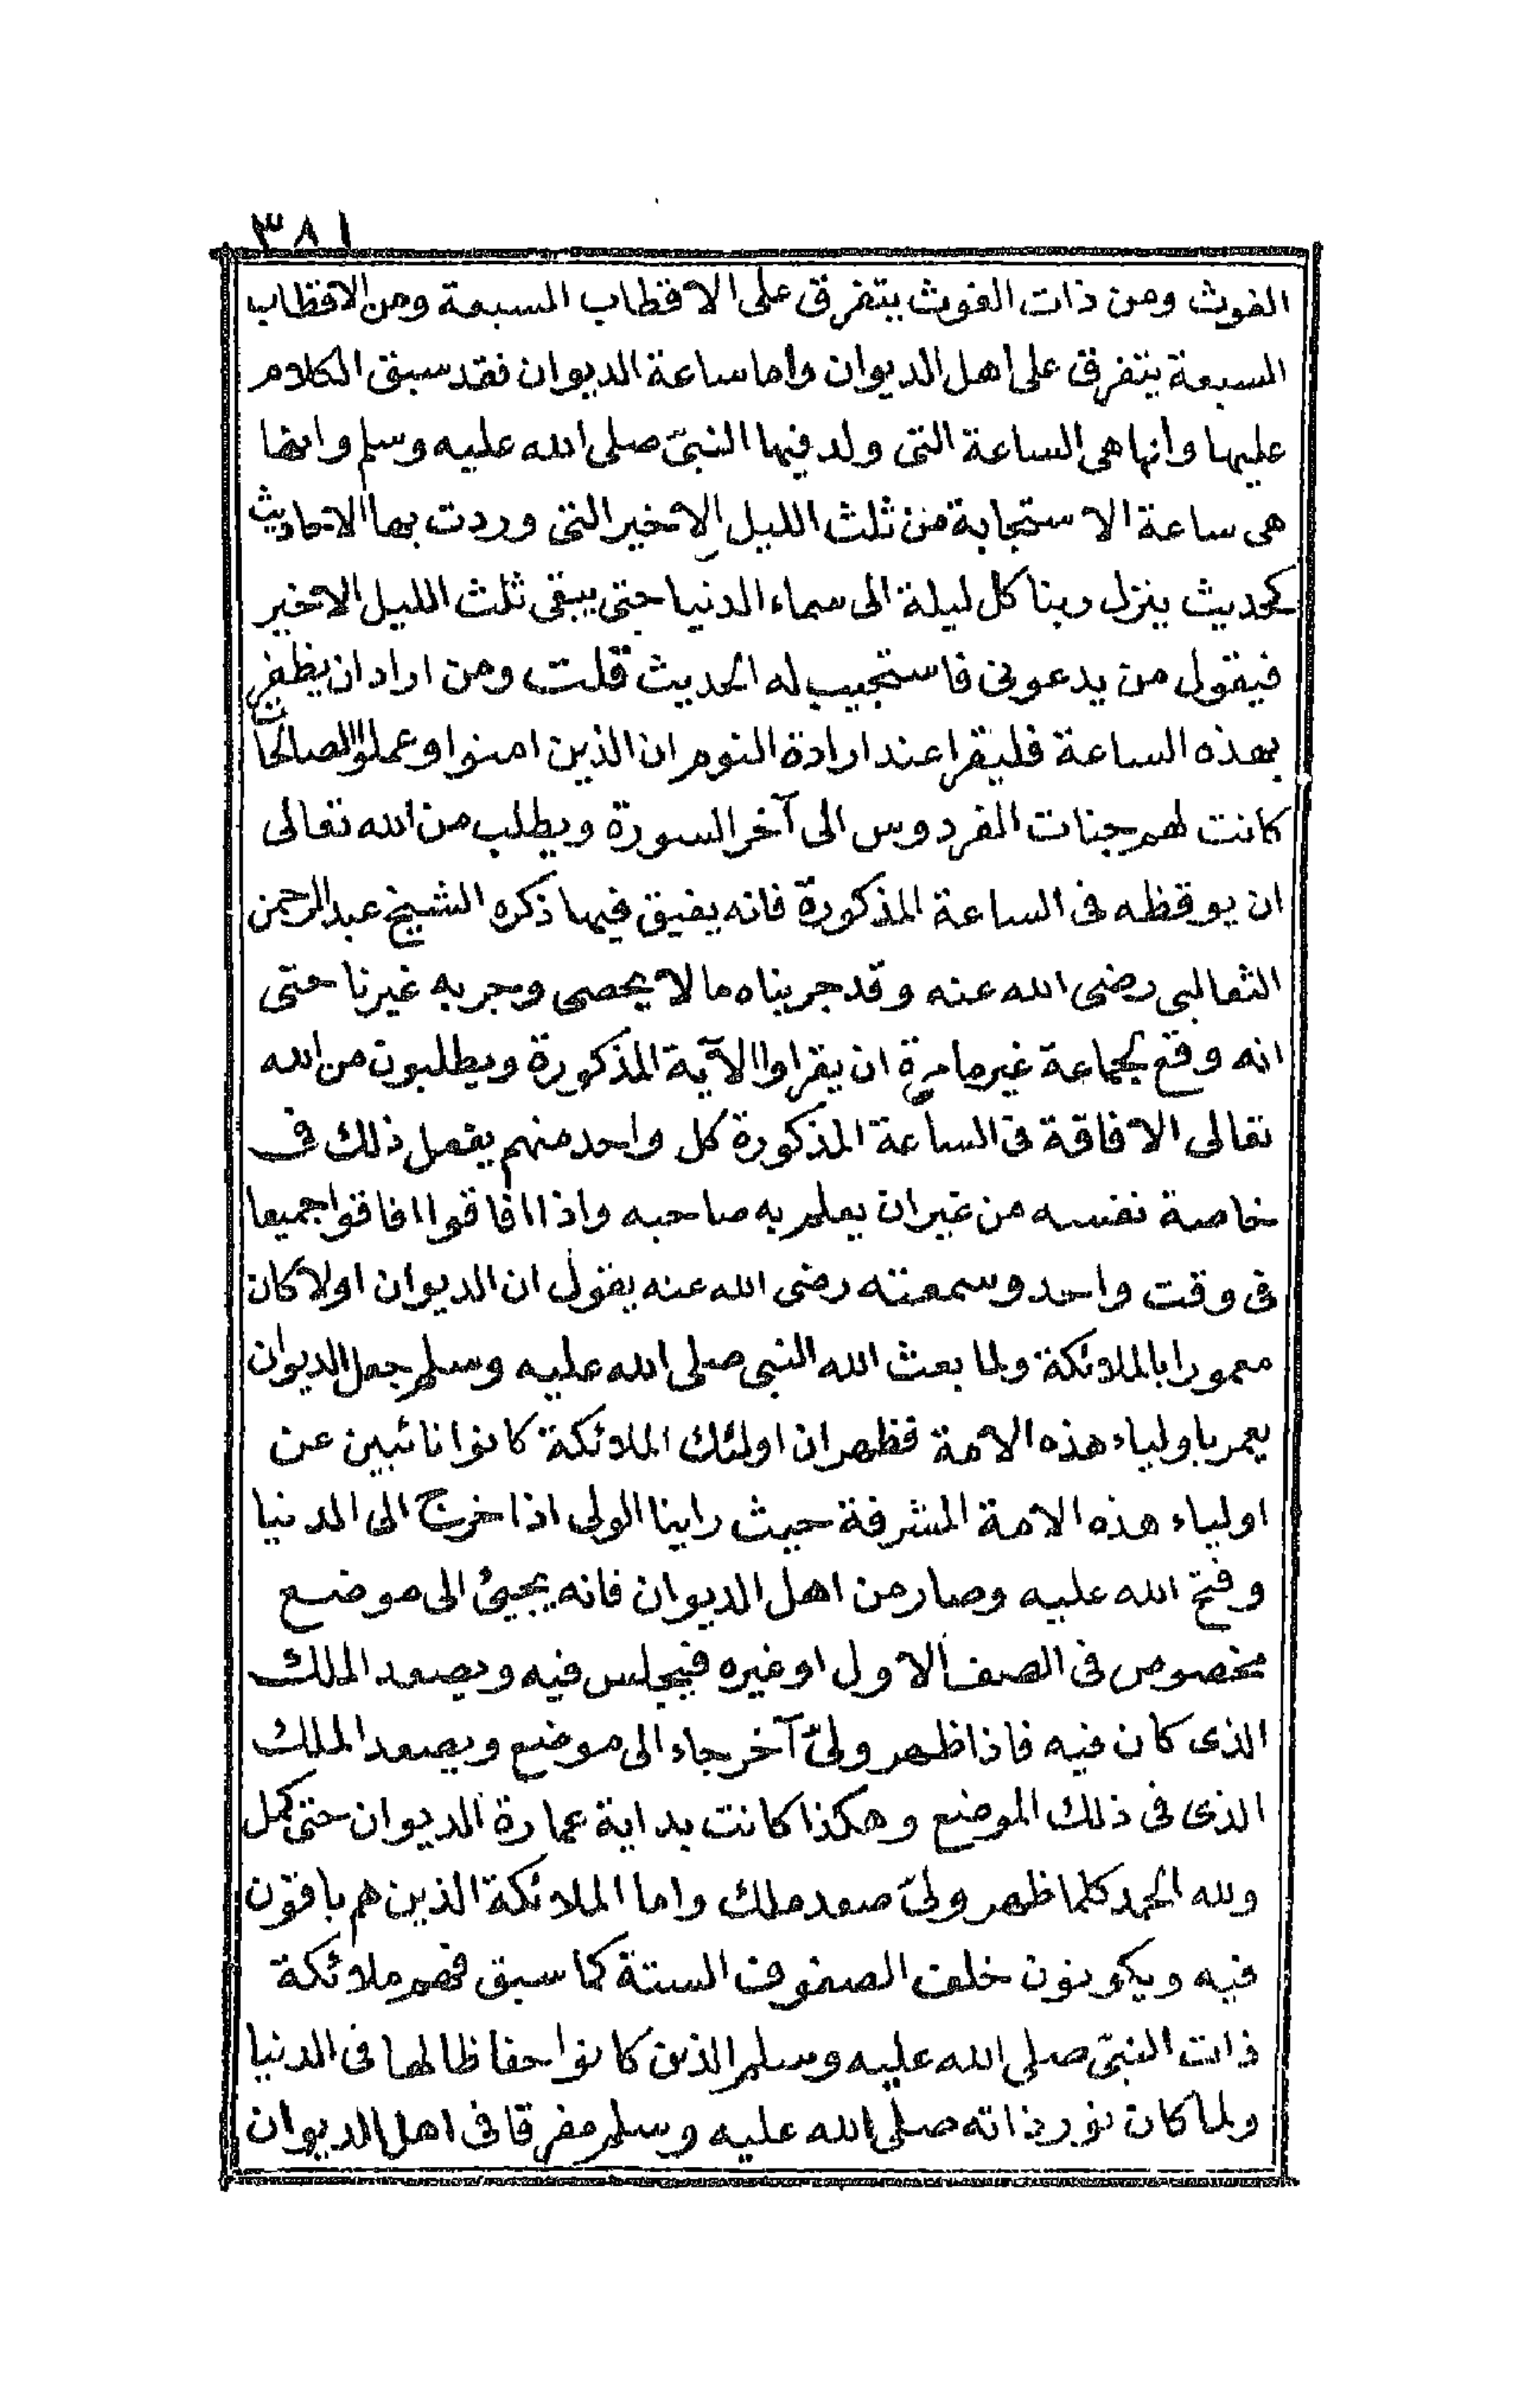 ٣٨١
الغوث ومن ذات الغوث يتفرق على الاقطاب السبعة ومن الاقطاب
السبعة يتفرق على اهل الديوان واما ساعة الديوان فقد سبق الكلام
عليها وانها هى الساعة التى ولد فيها النبىّ صلى الله عليه وسلم وانها
هى ساعة الاستجابة من ثلث الليل الاخير التى وردت بها الاحاديث
كحديث ينزل ربنا كل ليلة الى سماء الدنيا حتى يبقى ثلث الليل الاخير
فيقول من يدعونى فاستجيب له الحديث قلت ومن اراد ان يظفر
بهذه الساعة فليقرا عند ارادة النوم ان الذين امنوا وعملوا الصالحات
كانت لهم جنات الفردوس الى آخر السورة ويطلب من الله تعالى
ان يوقظه فى الساعة المذكورة فانه يفيق فيها ذكره الشيخ عبد الرحمن
الثعالبى رضى الله عنه وقد جربناه مالا يحصى وجربه غيرنا حتى
انه وقع لجماعة غير ما مرة ان يقراوا الآية المذكورة ويطلبون من الله
تعالى الافاقة فى الساعة المذكورة كل واحد منهم يفعل ذلك فى
خاصة نفسه من غير ان يعلم به صاحبه واذا افاقوا افاقوا جميعا
فى وقت واحد وسمعته رضى الله عنه يقول ان الديوان اولا كان
معمورا بالملائكة ولما بعث الله النبى صلى الله عليه وسلم جعل الديوان
يعمر باولياء هذه الامة فظهر ان اولئك الملائكة كانوا نائبين عن
اولياء هذه الامة المشرفة حيث راينا الولى اذا خرج الى الدنيا
وفتح الله عليه وصار من اهل الديوان فانه يجيئ الى موضع
مخصوص فى الصف الاول او غيره فيجلس فيه ويصعد الملك
الذى كان فيه فاذا ظهر ولىّ آخر جاء الى موضع ويصعد الملك
الذى فى ذلك الموضع وهكذا كانت بداية عمارة الديوان حتى كمل
ولله الحمد كلما ظهر ولىّ صعد ملك واما الملائكة الذين هم باقون
فيه ويكونون خلف الصفوف الستة كما سبق فهم ملائكة
ذات النبىّ صلى الله عليه وسلم الذين كانوا حفاظا لها فى الدنيا
ولما كان نور ذاته صلى الله عليه وسلم مفرقا فى اهل الديوان